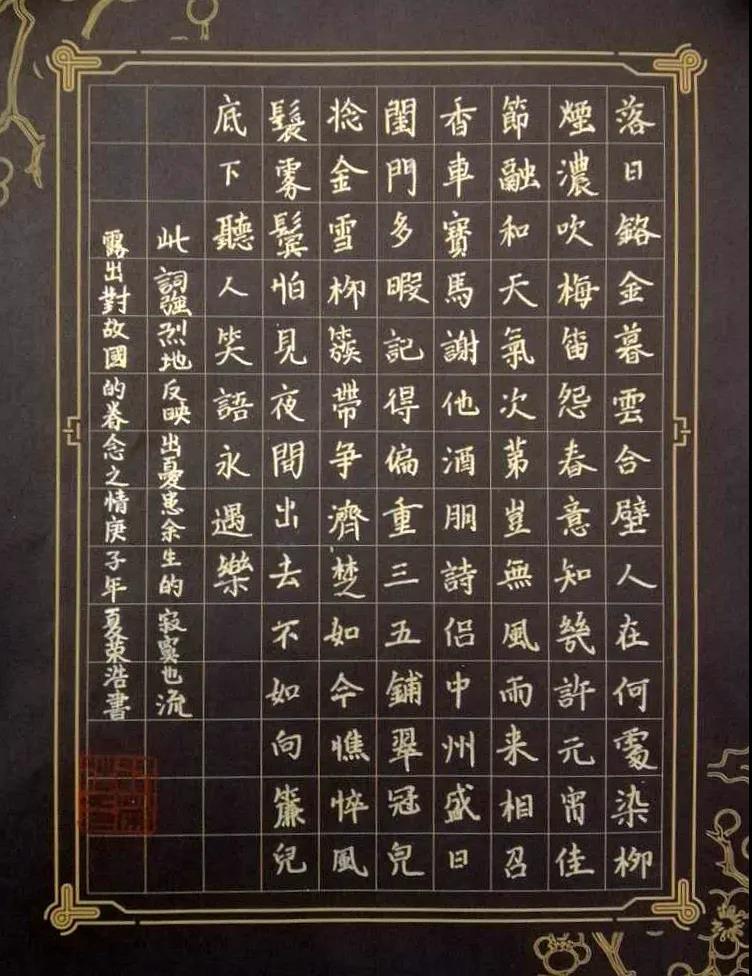 落日鉻金暮雲合壁人在何處染柳
煙濃吹梅笛怨春意知幾許元宵佳
節融和天氣次第豈無風雨来相召
香車寶馬謝他酒朋詩侶中州盛日
閨門多暇記得偏重三五鋪翠冠兒
捻金雪柳簇帶争濟楚如今憔悴風
鬟霧鬢怕見夜間出去不如向簾兒
底下聽人笑語永遇樂
此詞強烈地反映出憂患余生的寂寞也流
露出對故國的眷念之情庚子年夏荣浩書